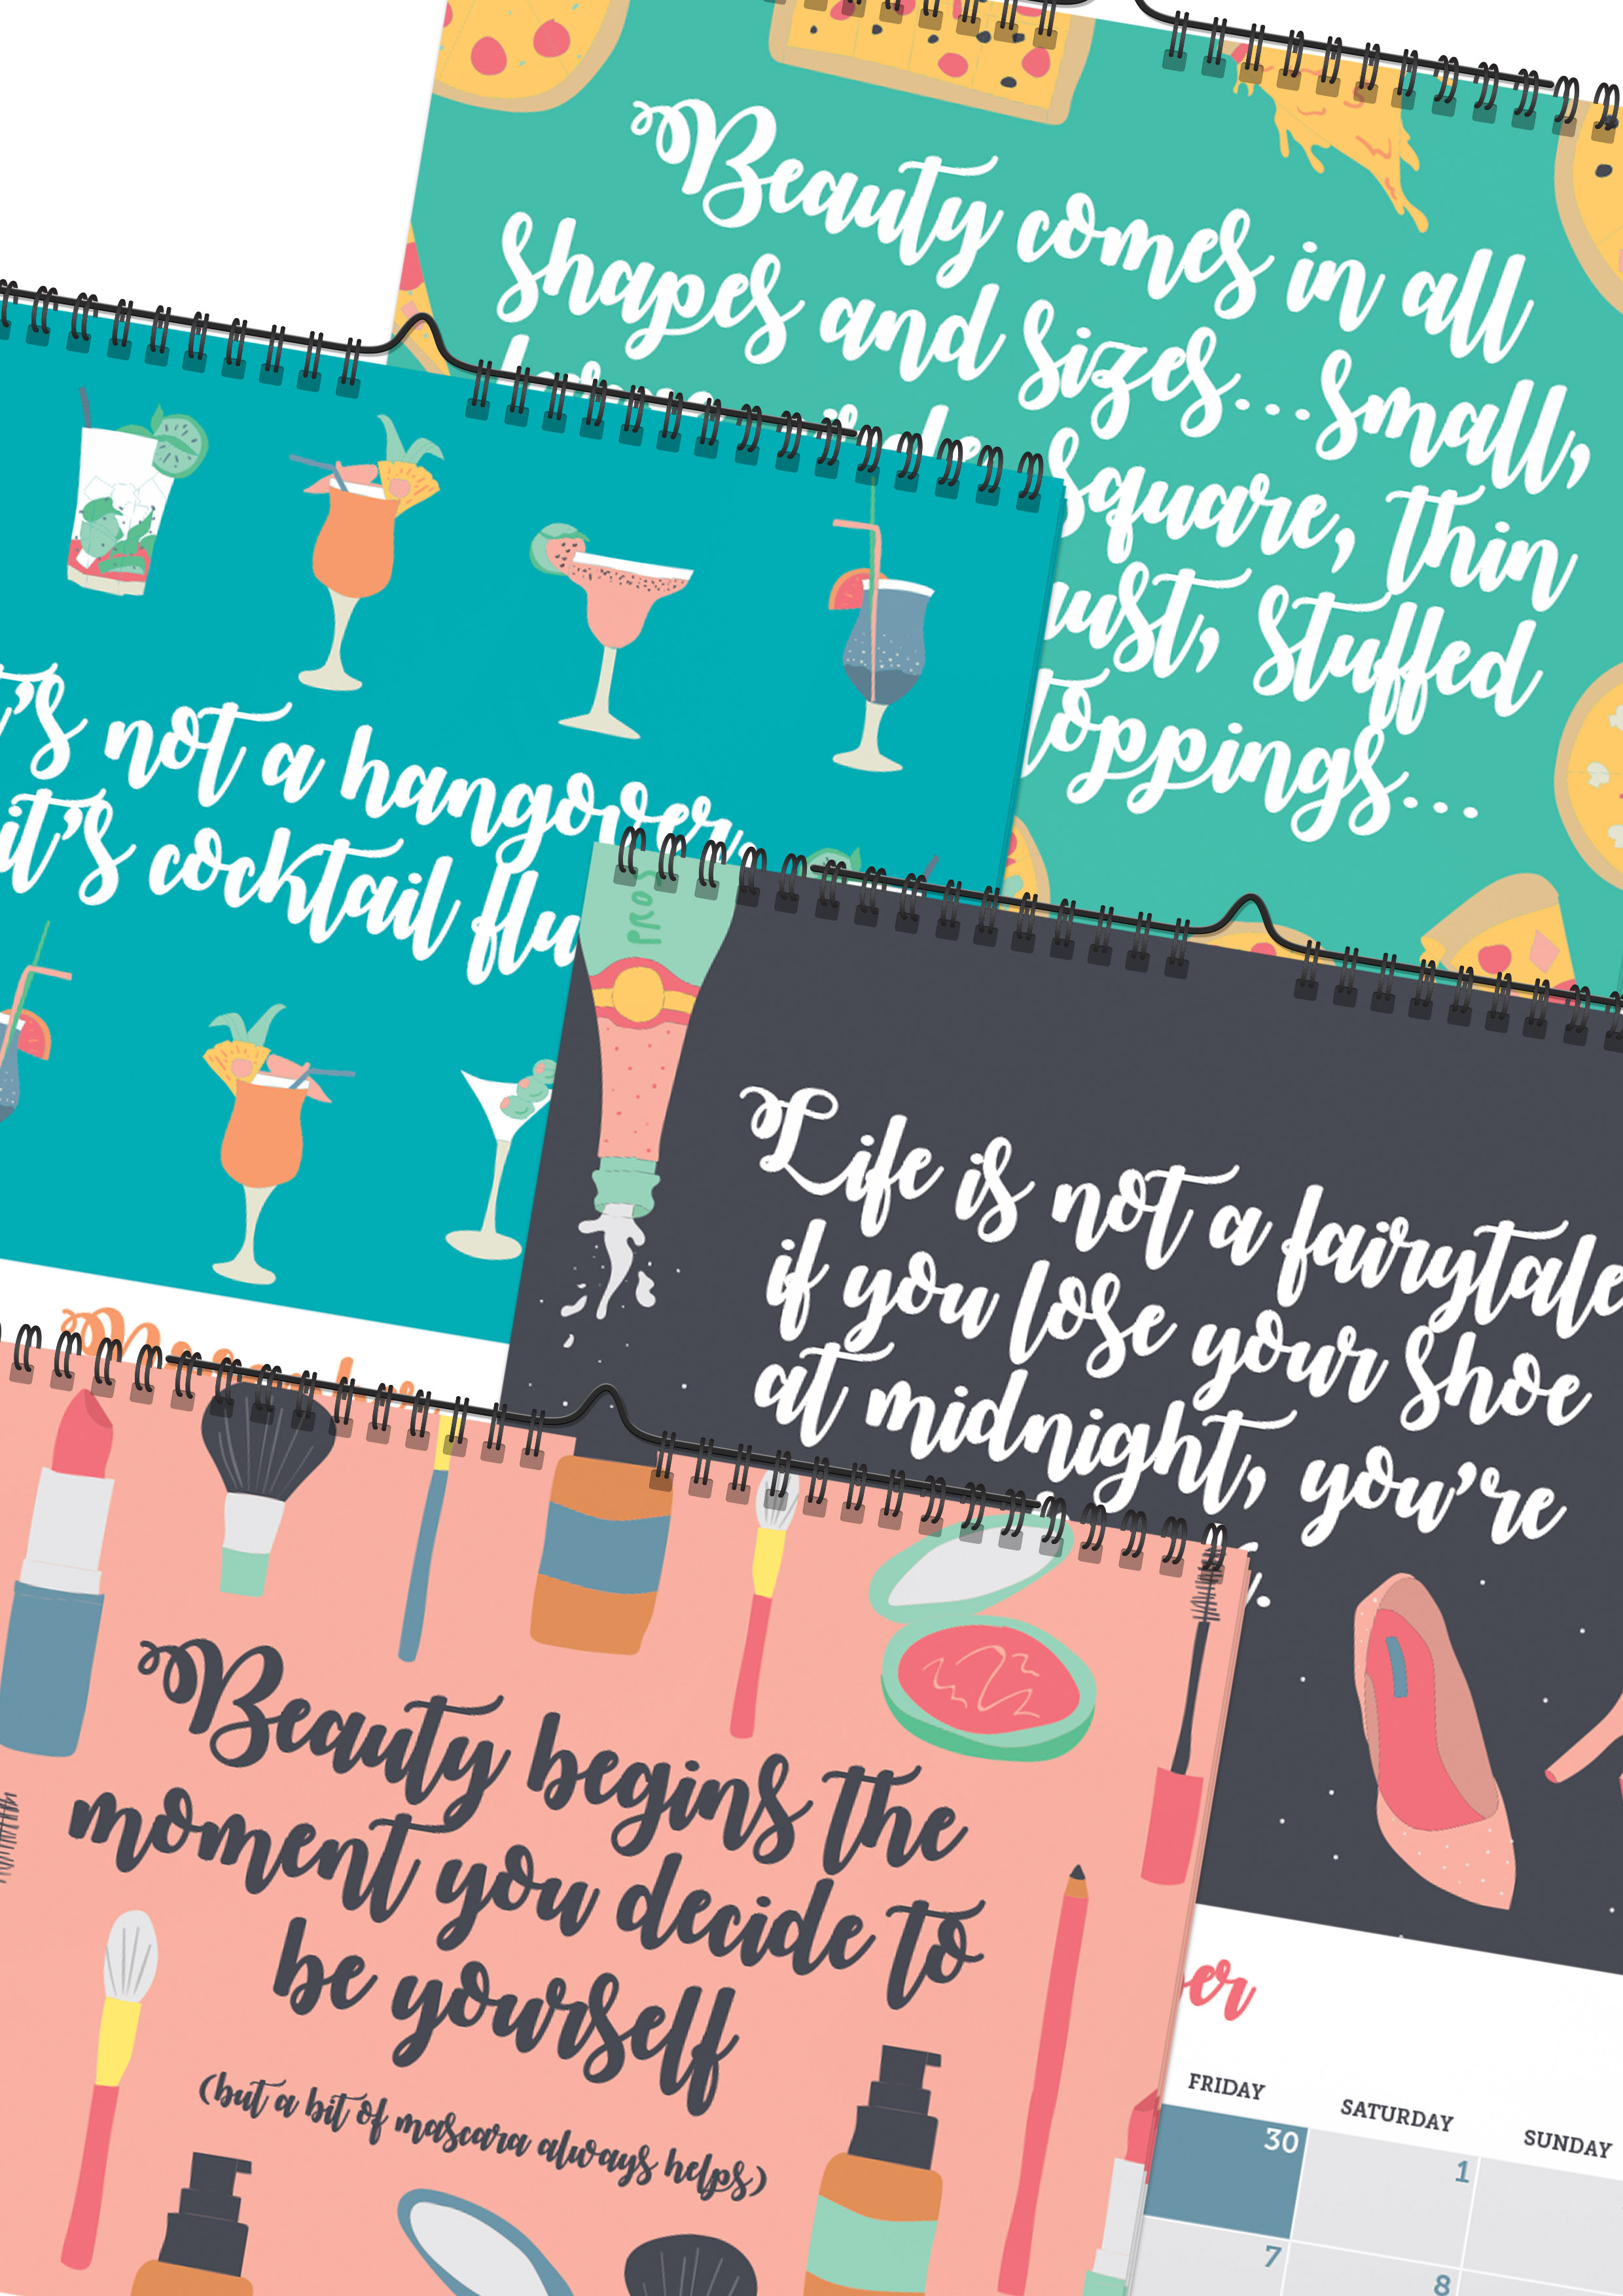 Beauty comes in all
shapes and sizes...small,
square, thin
stuffed
toppings...
's not a hangover,
it's cocktail flu
PROS
Life is not a fairytale
if you lose your shoe
at midnight, you're
Beauty begins the
moment you decide to
be yourself
(but a bit of mascara always helps)
er
FRIDAY SATURDAY SUNDAY
30 1
7 8